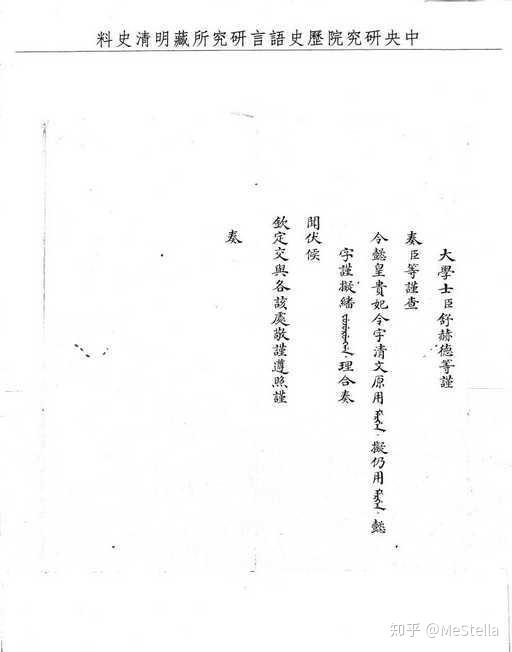 中央研究院歷史語言研究所藏明清史料
大學士臣舒赫德等謹
奏臣等謹查
令懿皇貴妃令字清文原用 擬仍用 懿
字謹擬繙 理合奏
聞伏候
欽定交與各該處敬謹遵照謹
奏
知乎 @MeStella